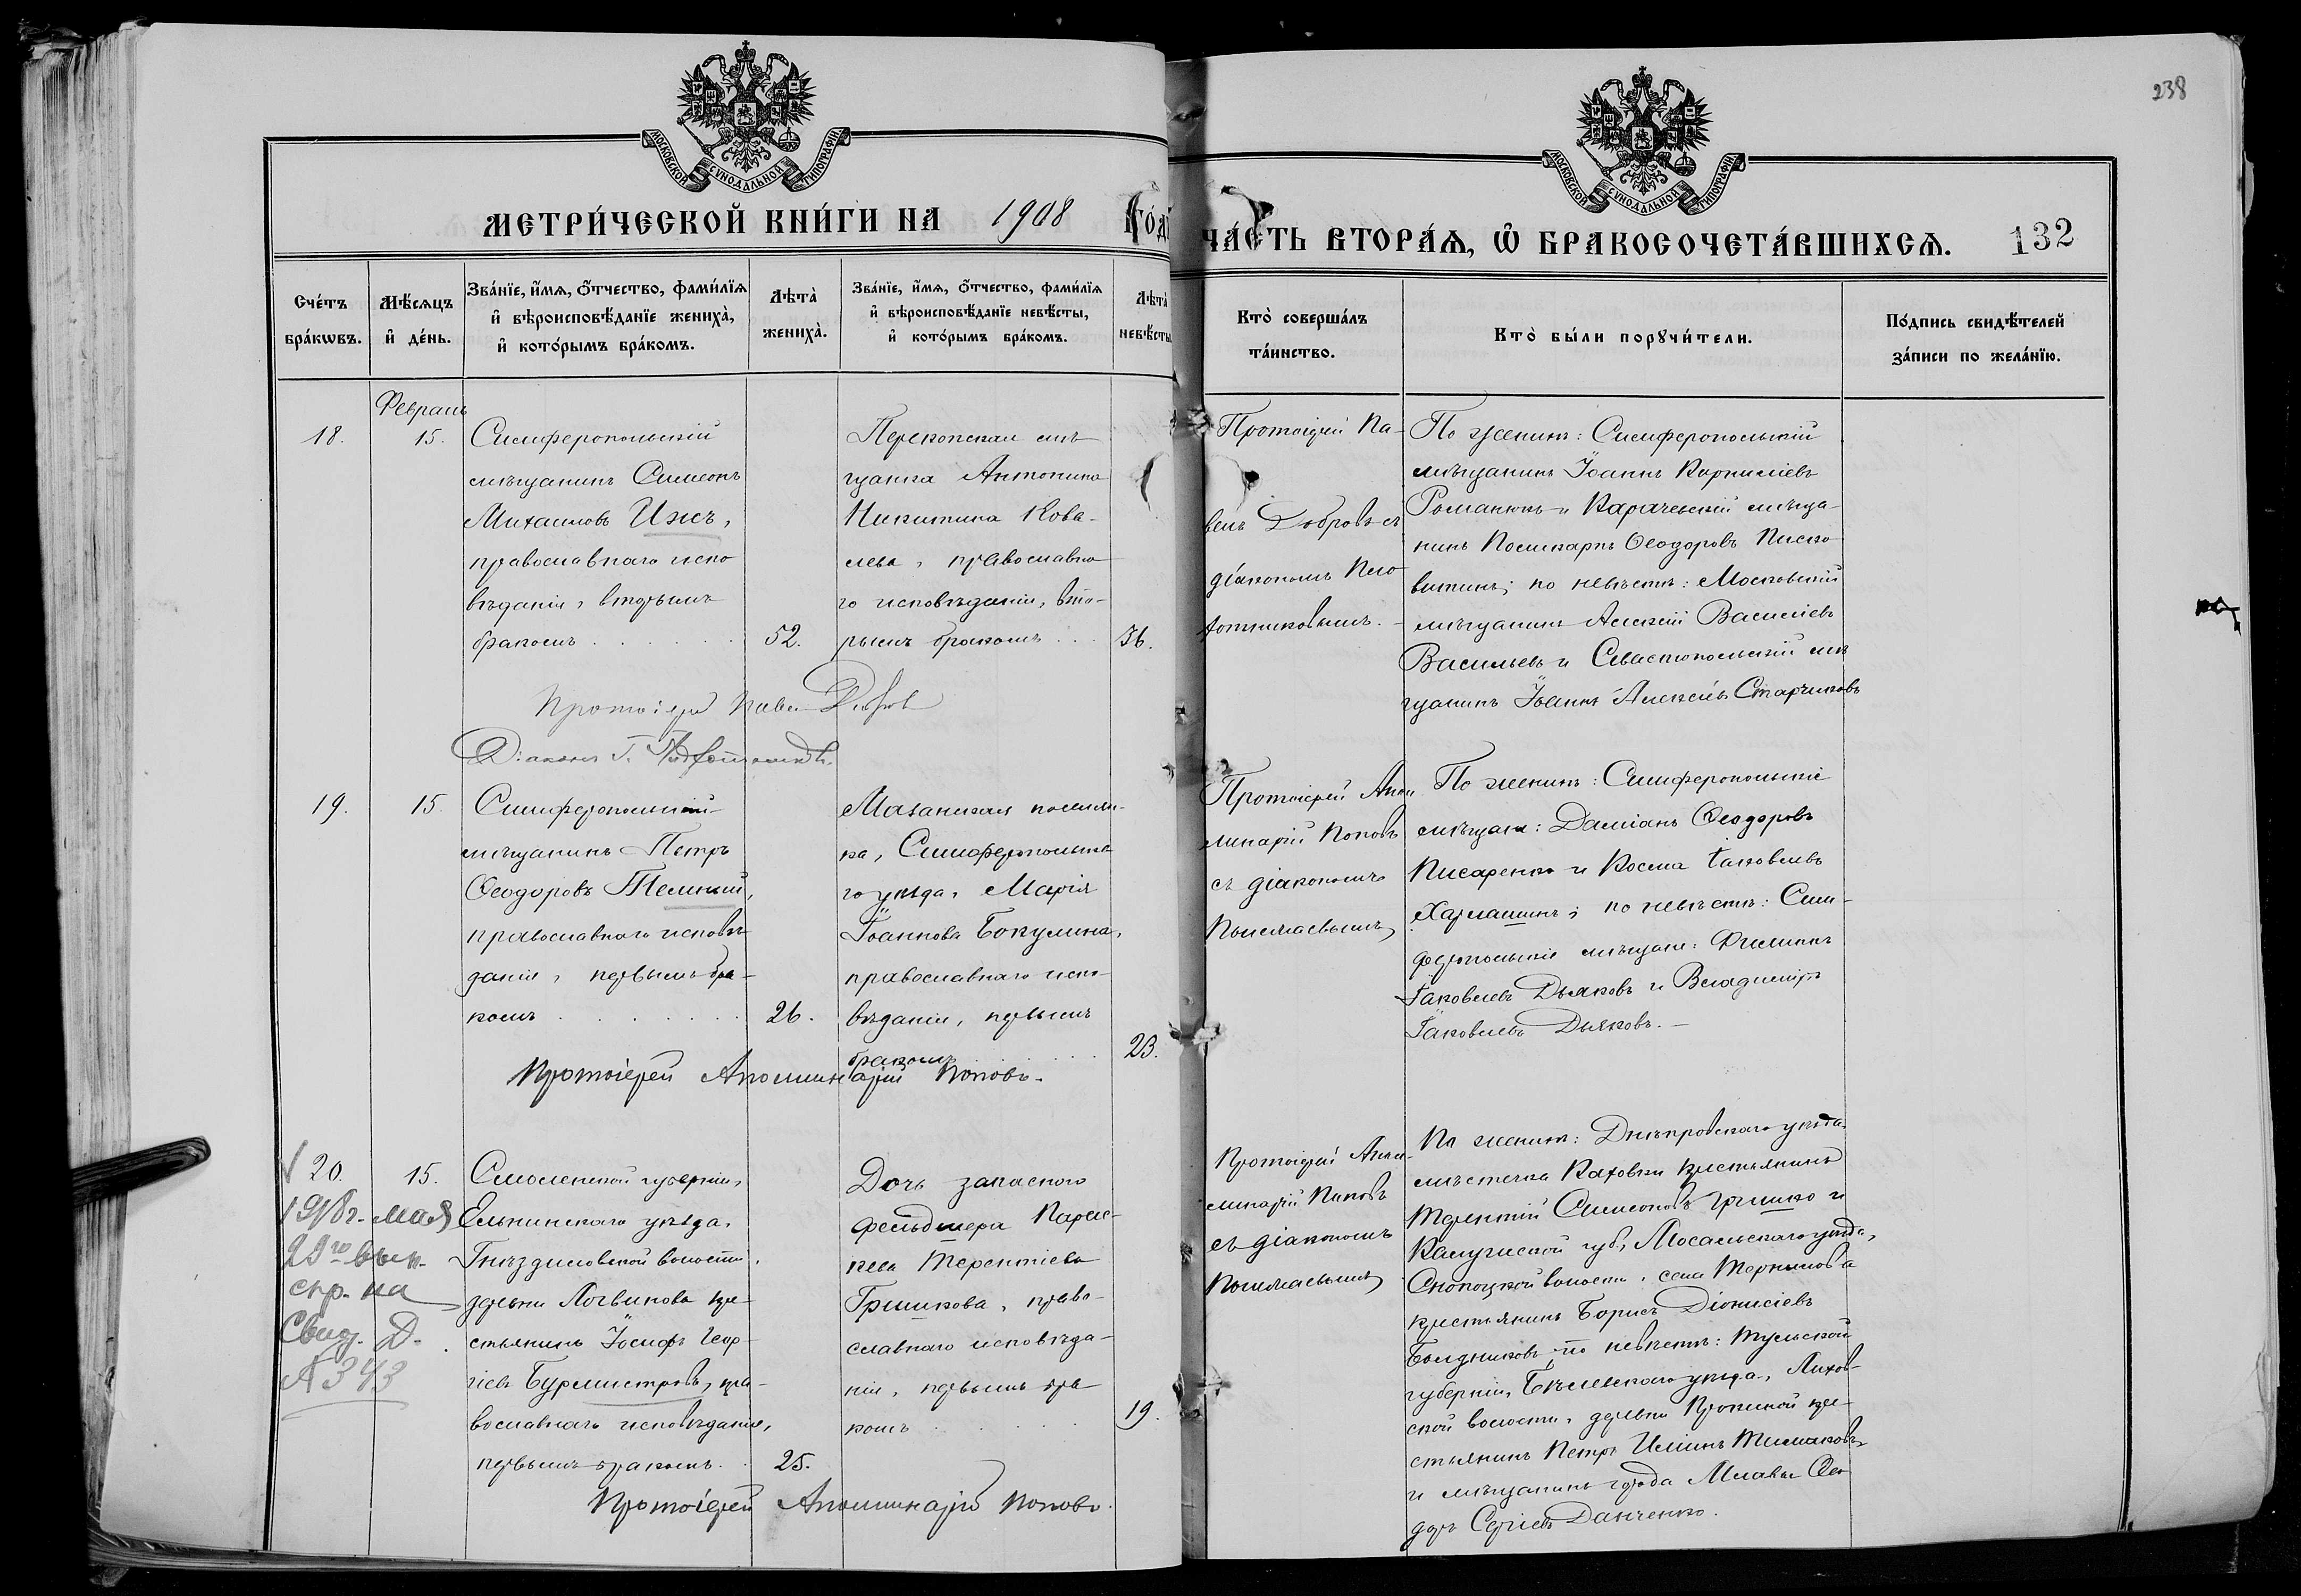 238
МОСКОВСКОЙ СѴНОДАЛЬНОЙ ТИПОГРАФІИ
МОСКОВСКОЙ СѴНОДАЛЬНОЙ ТИПОГРАФІИ
МЕТРИ́ЧЕСКОЙ КНИ́ГИ НА 1908 ГО́Д
ЧА́СТЬ ВТОРА́Ѧ, Ѡ҆ БРАКОСОЧЕТА́ВШИХСѦ. 132
Сче́тъ
бра́кѡвъ.
Мѣ́сяцъ
и҆ де́нь.
Зва́нїе, и҆́мѧ, ѻ҆́тчество, фами́лїѧ
и҆ вѣроисповѣ́данїе жениха̀,
и҆ кото́рымъ бра́комъ.
Лѣта̀
жениха̀.
Зва́нїе, и҆́мѧ, ѻ҆́тчество, фами́лїѧ
и҆ вѣроисповѣ́данїе невѣ́сты,
и҆ кото́рымъ бра́комъ.
Лѣта̀
невѣ́сты
Кто̀ соверша́лъ
та́инство.
Кто̀ бы́ли порꙋчи́тели.
По́дпись свидѣ́телей
за́писи по жела́нїю.
Февраль
18.
15.
Симферопольскій
мѣщанинъ Симеонъ
Михаиловъ Ижъ,
православнаго испо
вѣданія, вторымъ
бракомъ
52.
Перекопская мѣ
щанка Антонина
Никитина Кова-
лева, православна
го исповѣданія, вто-
рымъ бракомъ
36.
Протоіерей Па-
велъ Добровъ съ
діакономъ
По женихѣ: Симферопольскій
мѣщанинъ Іоаннъ Корниліевъ
Романюкъ и Карачевскій мѣща-
нинъ Поликарпъ Ѳеодоровъ Писко
витинъ; по невѣстѣ: Московскій
мѣщанинъ Алексій Василіевъ
Васильевъ и Севастопольскій мѣ
щанинъ Іоаннъ Алексѣевъ Старчиковъ
Протоіерей Павелъ Добровъ
Діаконъ Г.
19.
15.
Симферопольскій
мѣщанинъ Петръ
Ѳеодоровъ Темный,
православнаго исповѣ
данія, первымъ бра-
комъ
26.
Мазанская поселян-
ка, Симферопольска
го уѣзда, Марія
Іоаннова Бокулина,
православнаго испо-
вѣданія, первымъ
бракомъ
23.
Протоіерей Апол
линарій Поповъ
съ діакономъ
По женихѣ: Симферопольскіе
мѣщане: Даміанъ Ѳеодоровъ
Писаренко и Косма Іаковлевъ
Хармашинъ; по невѣстѣ: Сим-
феропольскіе мѣщане: Филиппъ
Іаковлевъ Дьяковъ и Владиміръ
Іаковлевъ Дьяковъ.
Протоіерей Аполлинарій Поповъ.
20.
15.
1918г. мая
22го вып.
спр. на
Свид. Д.
№ 343
Смоленской губерніи,
Ельнинскаго уѣзда,
Гнѣздиловской волости,
деревни Логвинова кре-
стьянинъ Іосифъ Геор-
гіевъ Бурмистровъ, пра-
вославнаго исповѣданія,
первымъ бракомъ.
25.
Дочь запаснаго
фельдшера Парас-
кева Терентіева
Гришкова, право-
славнаго исповѣда-
нія, первымъ бра
комъ
19.
Протоіерей Апол-
линарій Поповъ
съ діакономъ
По женихѣ: Днѣпровскаго уѣзда
мѣстечка Каховки крестьянинъ
Терентій Симеоновъ Гришко и
Калужской губ., Мосальскаго уѣзда,
волости, села
крестьянинъ Борисъ Діонисіевъ
Болдниковъ, по невѣстѣ: Тульской
губерніи, Бѣлевскаго уѣзда, Лихов-
ской волости, деревни кре-
стьянинъ Петръ Иліинъ Тимаковъ
и мѣщанинъ города Млавы Ѳео
доръ Сергіевъ Данченко.
Протоіерей Аполлинарій Поповъ.